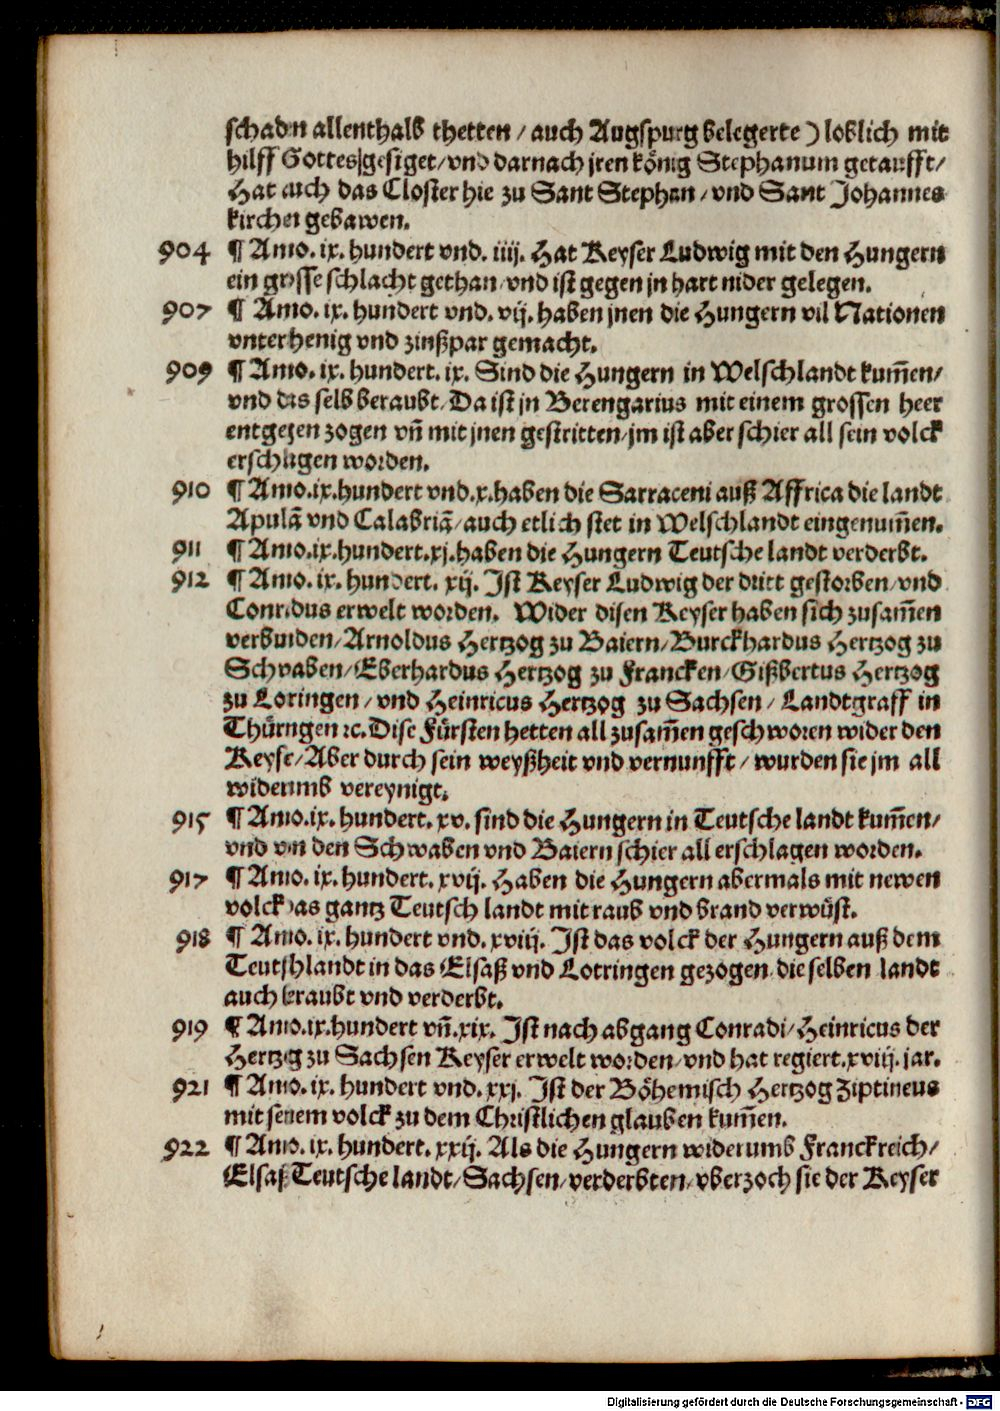 schaden allenthalb thetten / auch Augspurg belegerte ) loblich mit
hilff Gottes gesiget / vnd darnach jren könig Stephanum getaufft /
Hat auch das Closter hie zu Sant Stephan / vnd Sant Johannes
kirchen gebawen.
904 ¶ Anno. ix. hundert vnd. iiij. Hat Keyser Ludwig mit den Hungern
ein grosse schlacht gethan / vnd ist gegen jn hart nider gelegen.
907 ¶ Anno. ix. hundert vnd. vij. haben jnen die Hungern vil Nationen
vnterhenig vnd zinßpar gemacht.
909 ¶ Anno. ix. hundert. ix. Sind die Hungern in Welschlandt kum̃en /
vnd das selb beraubt / Da ist jn Berengarius mit einem grossen heer
entgegen zogen vñ mit jnen gestritten / jm ist aber schier all sein volck
erschlagen worden.
910 ¶ Anno. ix. hundert vnd. x. haben die Sarraceni auß Affrica die landt
Apulã vnd Calabriã / auch etlich stet in Welschlandt eingenum̃en.
911 ¶ Anno. ix. hundert. xj. haben die Hungern Teutsche landt verderbt.
912 ¶ Anno. ix. hundert. xij. Ist Keyser Ludwig der dritt gestorben / vnd
Conradus erwelt worden. Wider disen Keyser haben sich zusam̃en
verbunden / Arnoldus Hertzog zu Baiern / Burckhardus Hertzog zu
Schwaben / Eberhardus Hertzog zu Francken / Gißbertus Hertzog
zu Loringen / vnd Heinricus Hertzog zu Sachsen / Landtgraff in
Thürngen ꝛc. Dise Fürsten hetten all zusam̃en geschworen wider den
Keyser / Aber durch sein weyßheit vnd vernunfft / wurden sie jm all
widerumb vereynigt.
915 ¶ Anno. ix. hundert. xv. sind die Hungern in Teutsche landt kum̃en /
vnd von den Schwaben vnd Baiern schier all erschlagen worden.
917 ¶ Anno. ix. hundert. xvij. Haben die Hungern abermals mit newen
volck das gantz Teutsch landt mit raub vnd brand verwüst.
918 ¶ Anno. ix. hundert vnd. xviij. Ist das volck der Hungern auß dem
Teutschlandt in das Elsaß vnd Lotringen gezogen / die selben landt
auch beraubt vnd verderbt.
919 ¶ Anno. ix. hundert vñ. xix. Ist nach abgang Conradi / Heinricus der
Hertzog zu Sachsen Keyser erwelt worden / vnd hat regiert. xviij. jar.
921 ¶ Anno. ix. hundert vnd. xxj. Ist der Böhemisch Hertzog Ziptineus
mit seinem volck zu dem Christlichen glauben kum̃en.
922 ¶ Anno. ix. hundert. xxij. Als die Hungern widerumb Franckreich /
Elsaß / Teutsche landt / Sachsen / verderbten / vberzoch sie der Keyser
Digitalisierung gefördert durch die Deutsche Forschungsgemeinschaft - DFG